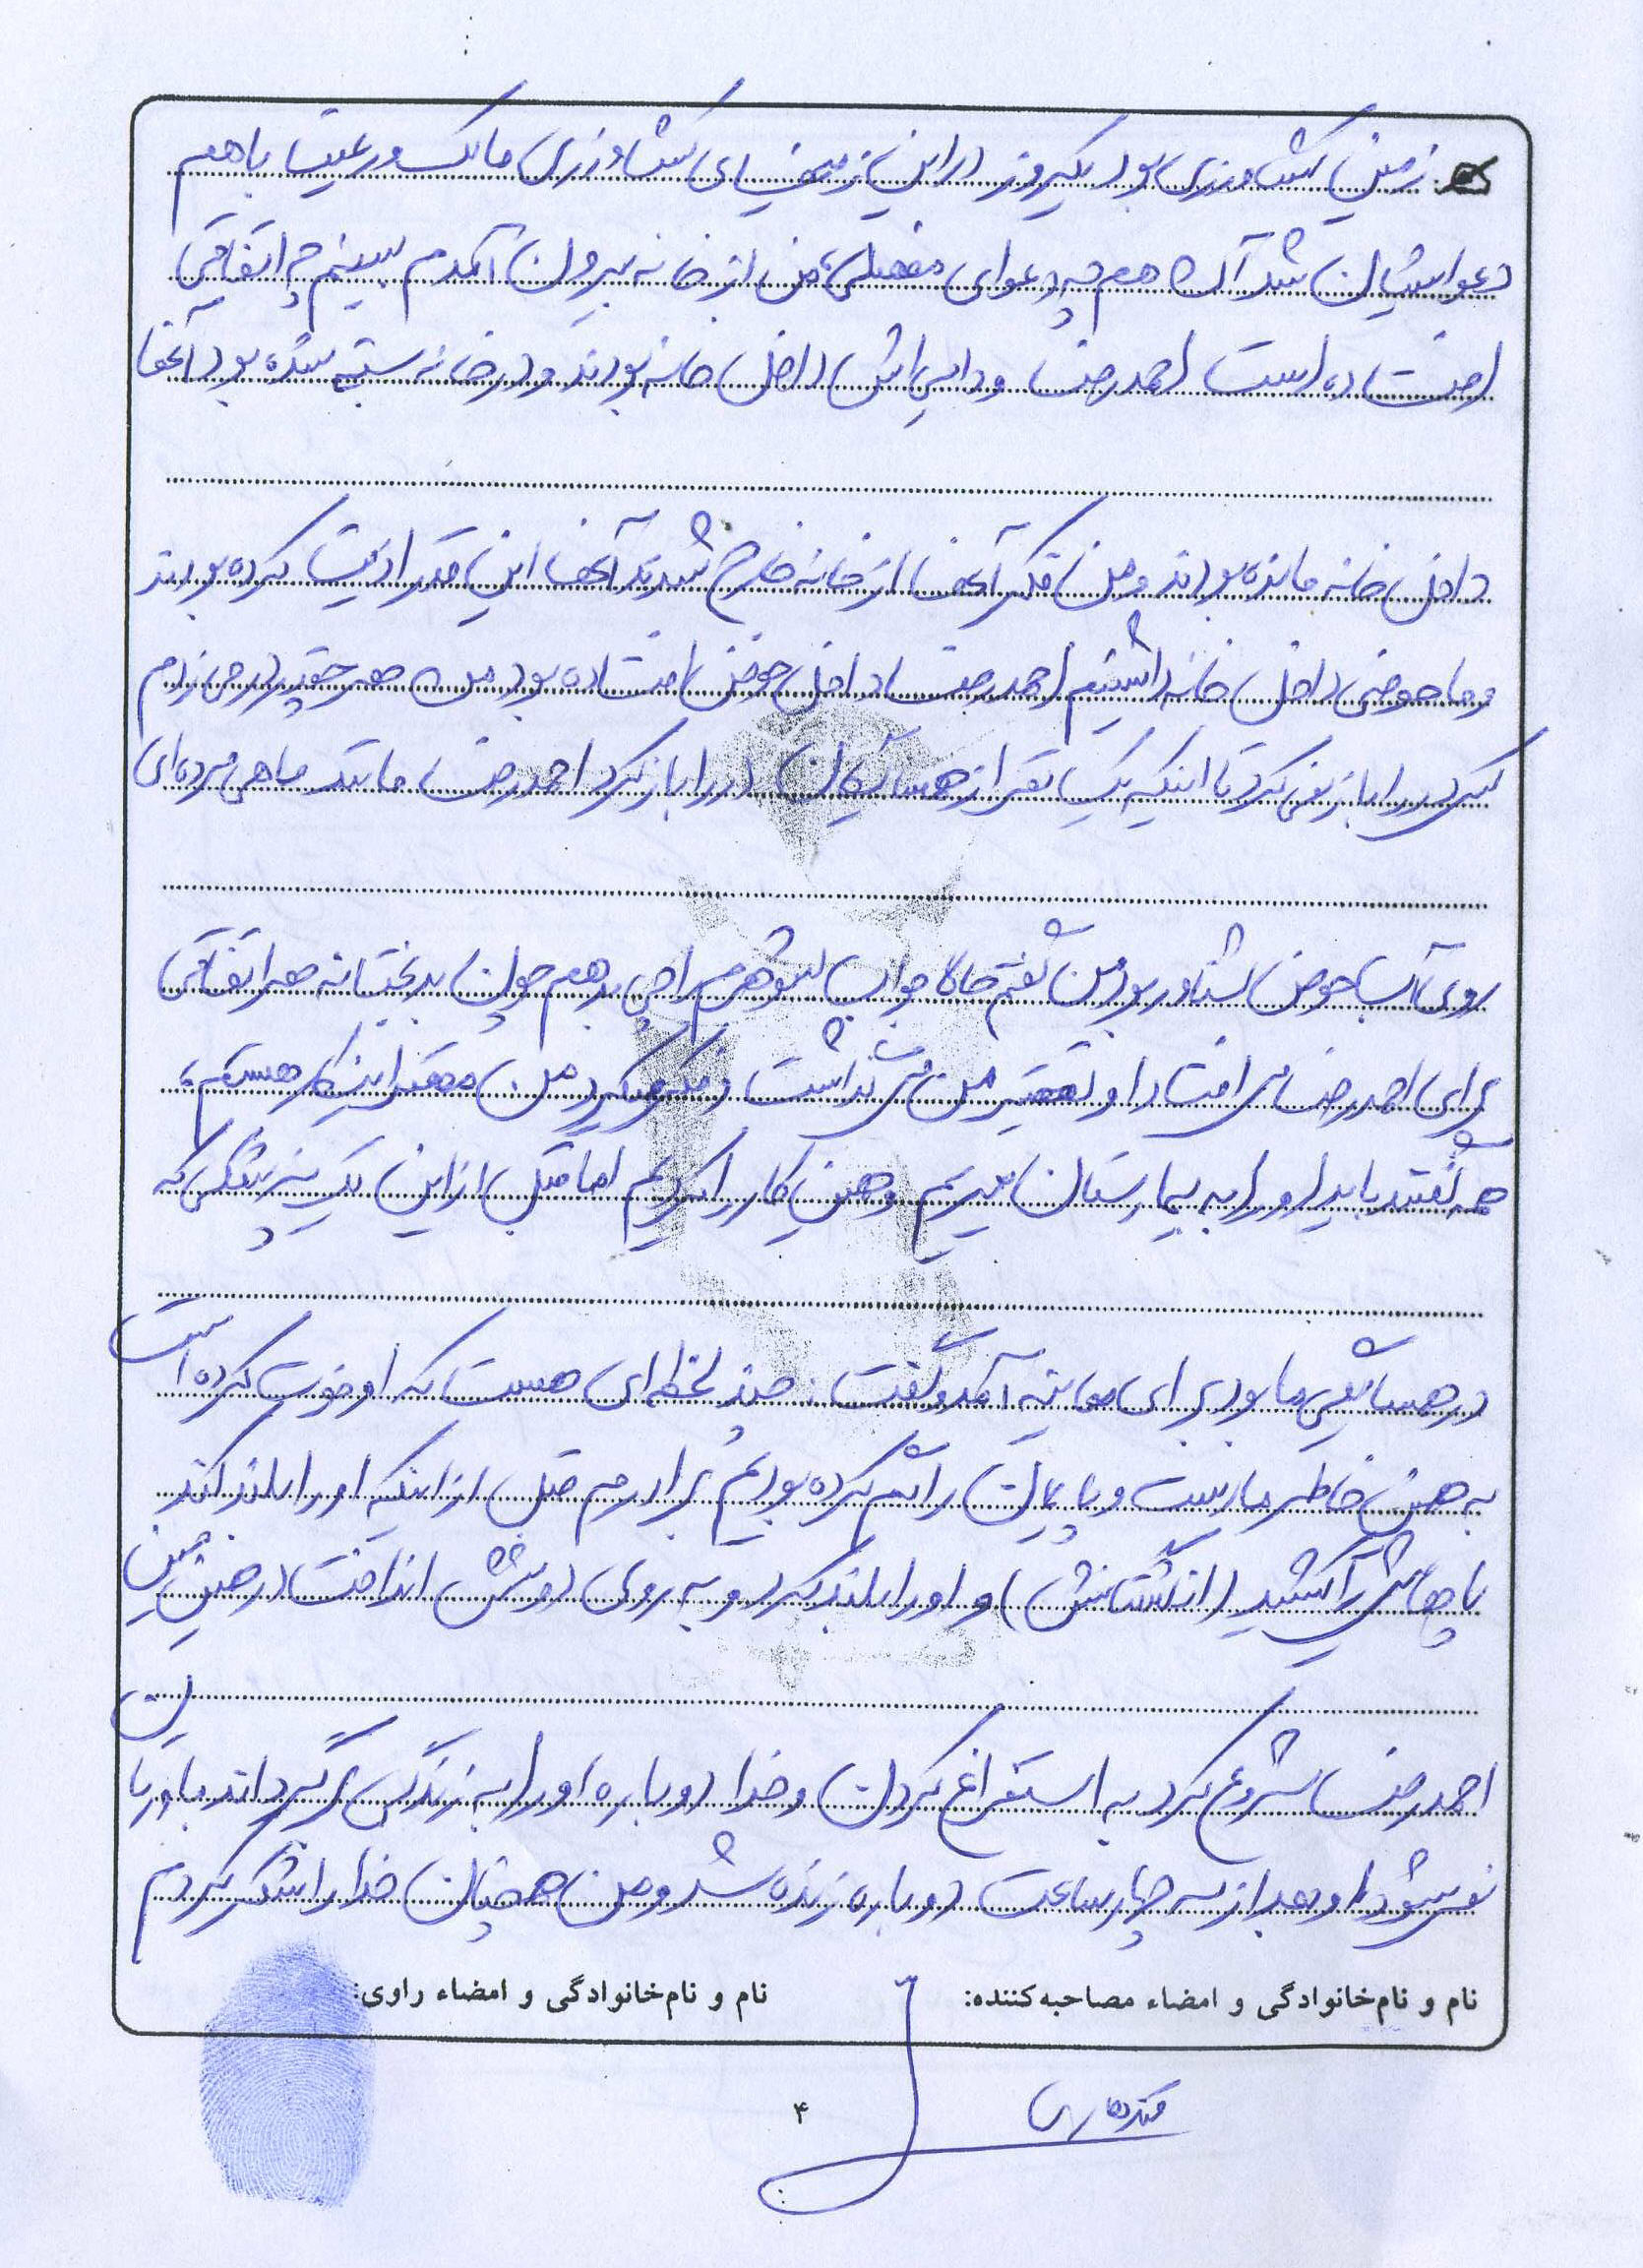 زمین کشاورزی بود یکروز در این زمینهای کشاورزی مالک و رعیت با هم
دعوایشان شد آن هم چه دعوای مفصلی، من از خانه بیرون آمدم ببینم چه اتفاقی
افتاده است احمدرضا و دایی اش داخل خانه بودند و در خانه بسته شده بود آنها
داخل خانه مانده بودند و من فکر آنها از خانه خارج شدند آنها این قدر اذیت کرده بودند
و ما حوضی داخل خانه داشتیم احمدرضا داخل حوض افتاده بود من هر چقدر در می زدم
کسی در را باز نمی کرد تا اینکه یک نفر از همسایگان در را باز کرد احمدرضا مانند ماهی مرده ای
روی آب حوض شناور بود من گفتم حالا جواب شوهرم را چی بدهم چون بدبختانه هر اتفاقی
برای احمدرضا می افتاد او تقصیر من می گذاشت و فکر میکرد من مقصر اینکار هستم،
همه گفتند باید او را به بیمارستان ببریم و همین کار را کردیم اما قبل از این یک پزشکی که
در همسایگی ما بود برای معاینه آمد و گفت: چند لحظه ای هست که او فوت کرده است
به همین خاطر ما دست و پایمان را گم کرده بودیم برادرم قبل از اینکه او را بلند کند
پاهایش را کشید (انگشتانش) و او را بلند کرد و به روی دوشش انداخت در همین حین
احمدرضا شروع کرد به استفراغ کردن و خدا دوباره او را به زندگی برگرداند باورتان
نمی شود او بعد از سه چهار ساعت دوباره زنده شد و من همچنان خدا را شکر کردم
نام و نام‌خانوادگی و امضاء مصاحبه‌کننده:
نام و نام‌خانوادگی و امضاء راوی:
قندهاری
۴